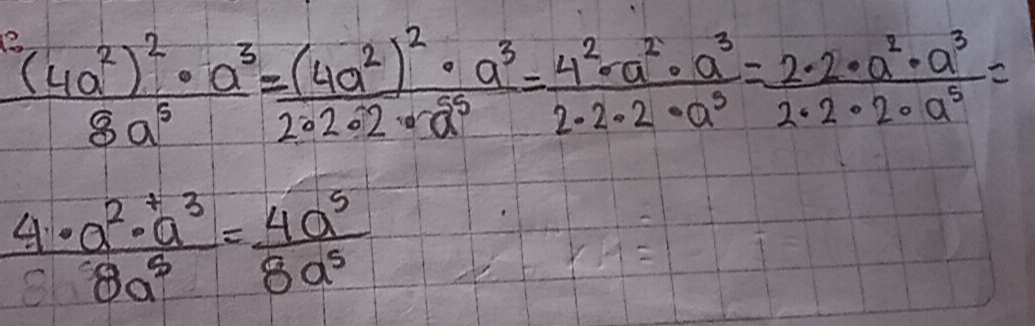 (4a²)² · a³ / 8a⁵ = (4a²)² · a³ / 2·2·2·a⁵ = 4²·a²·a³ / 2·2·2·a⁵ = 2·2·a²·a³ / 2·2·2·a⁵ =
4·a²·⁺a³ / 8a⁵ = 4a⁵ / 8a⁵